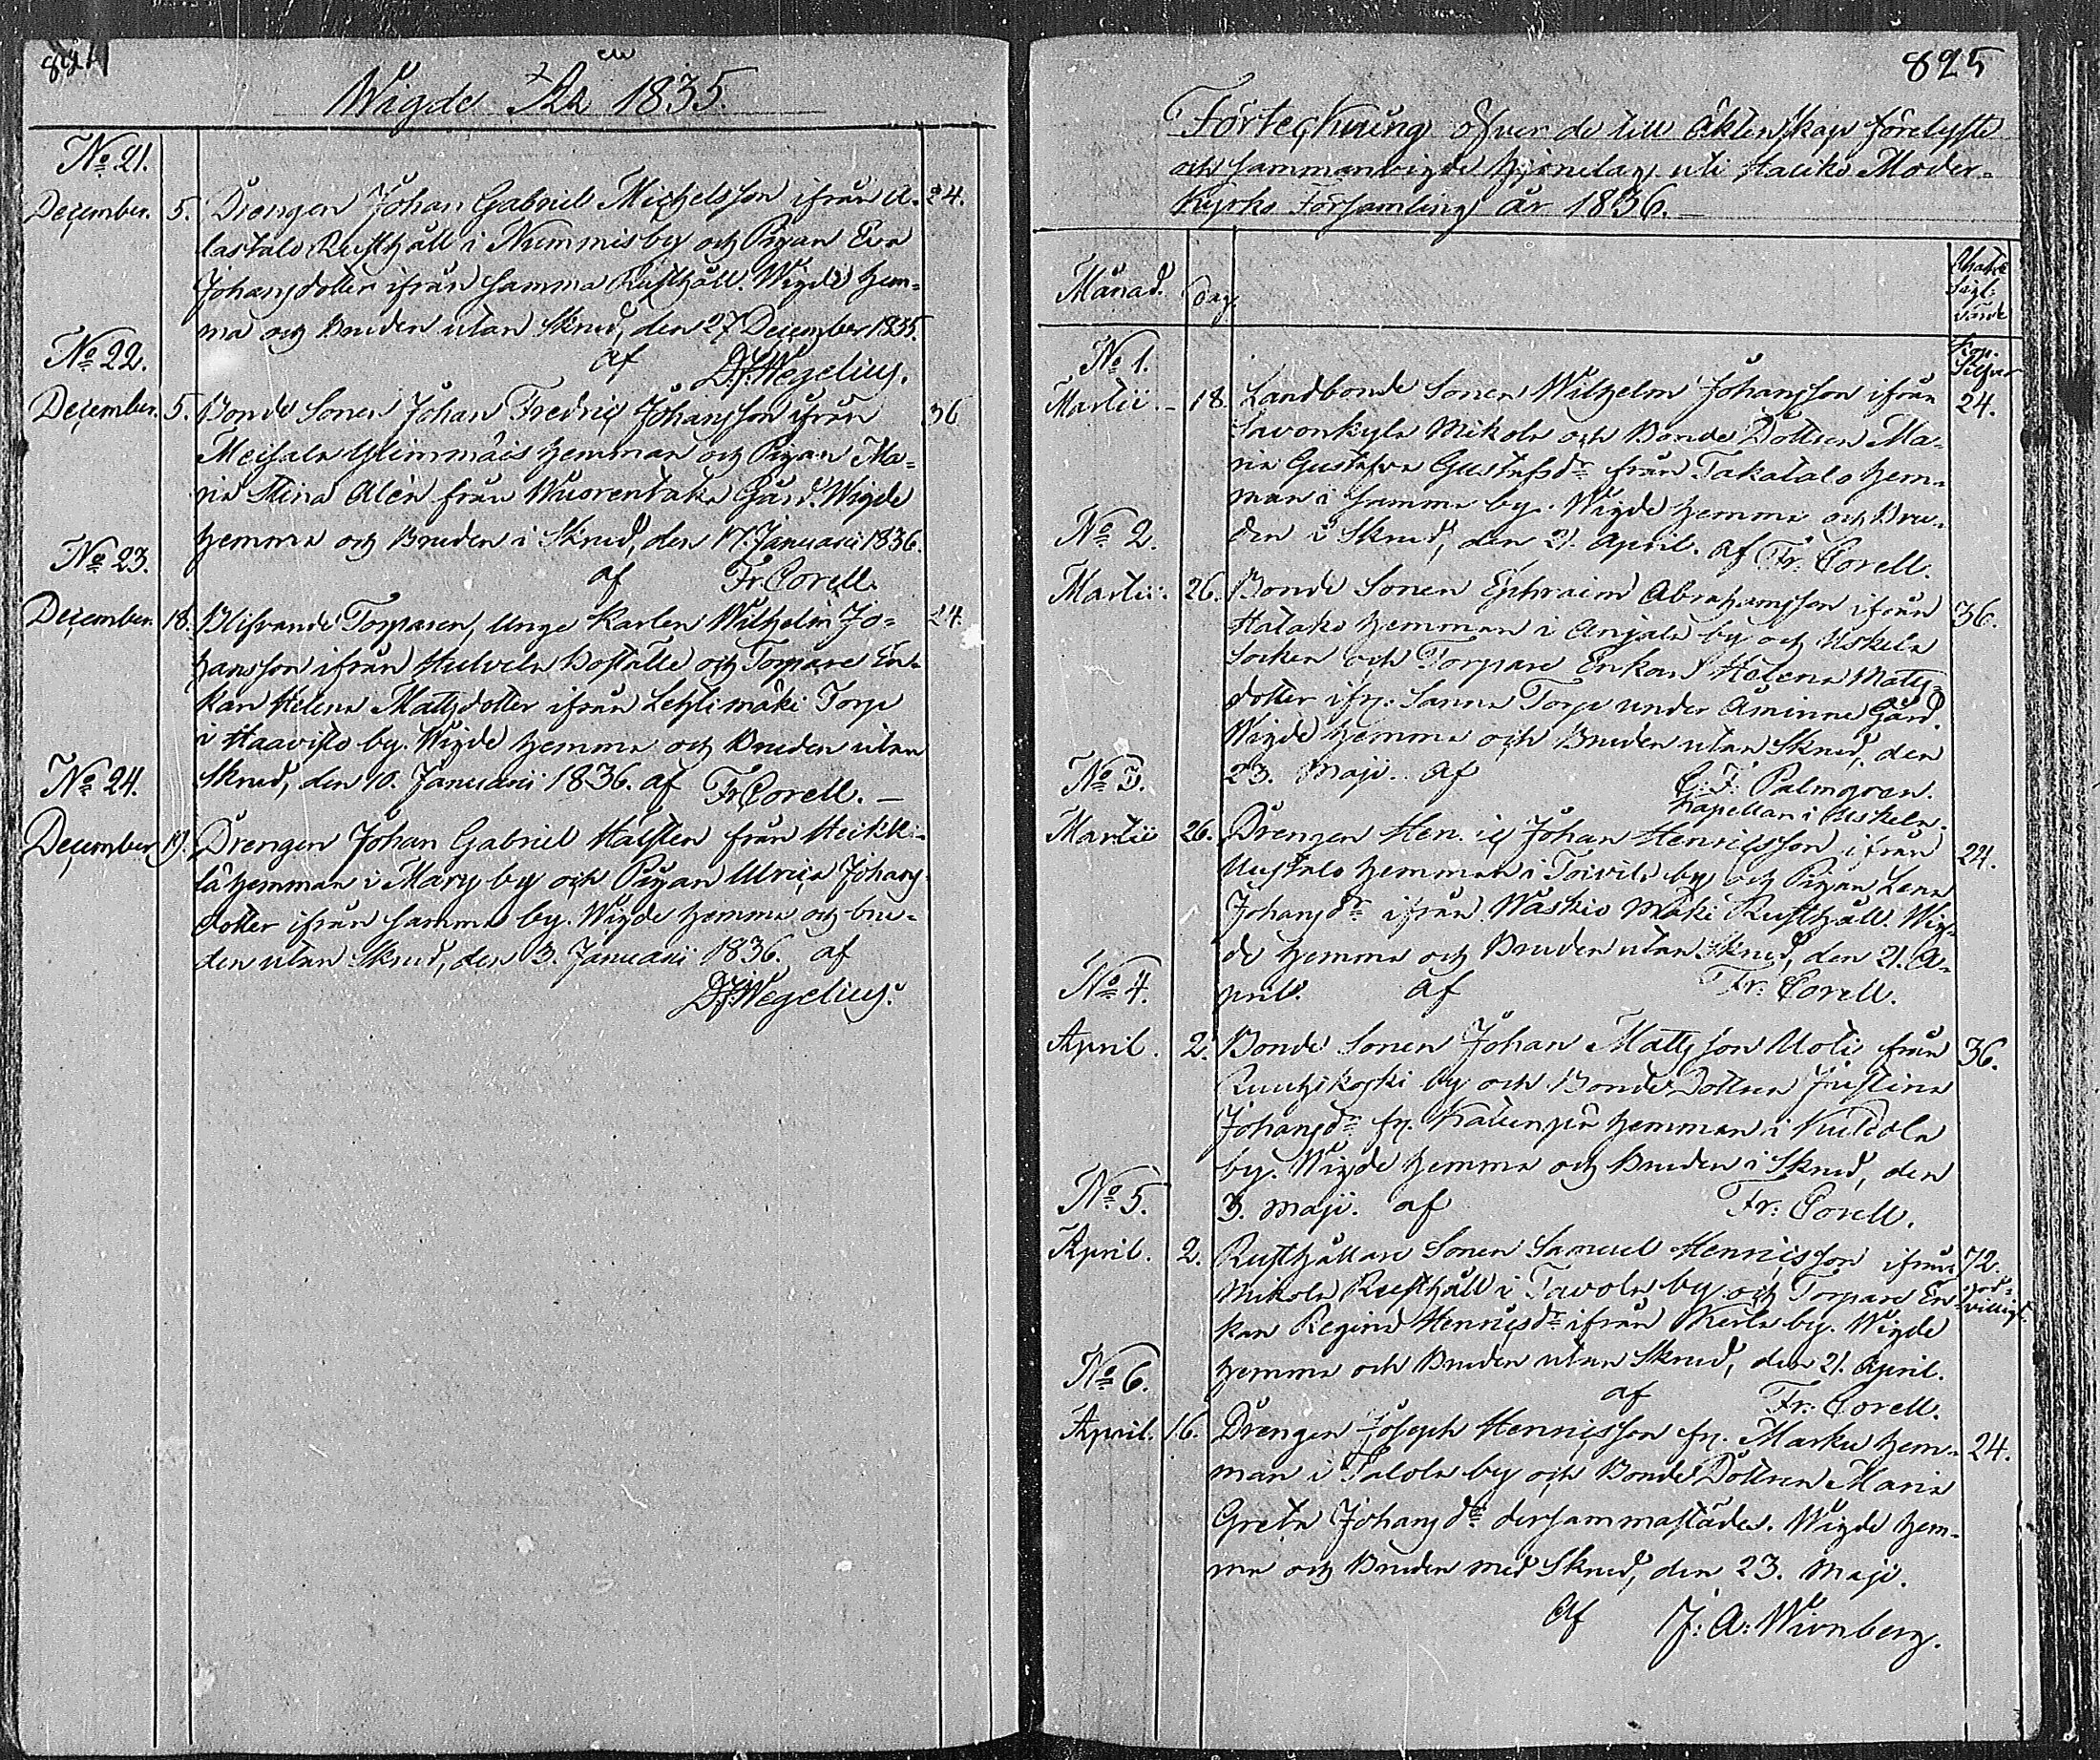 824
Wigde År 1835.
No 21.
December. 5. Drengen Johan Gabriel Michelsson ifrån A- 24.
lastalo Rusthåll i Nummis by och Pigan Eva
Johansdotter ifrån samma Rusthåll. Wigde hem-
ma och Bruden utan Skrud, den 27 December 1835.
af D. Wegelius.
No 22.
December. 5. Bonde Sonen Johan Fredric Johansson ifrån 36
Meisala hemman och Pigan Ma-
ria Stina Alén från Wuorentaka Gård. Wigde
hemma och Bruden i Skrud, den 17. Januarii 1836.
af Fr. Corell.
No 23.
December. 18. Blifvande Torparen, Unge Karlen Wilhelm Jo- 24.
hansson ifrån Hulvela Boställe och Torpare En-
kan Helena Mattsdotter ifrån Lehtimäki Torp
i Haavisto by. Wigde hemma och Bruden utan
Skrud, den 10. Januarii 1836. af Fr Corell. —
No 24.
December 19. Drengen Johan Gabriel Halsten från Heikki-
lä hemman i Mary by och Pigan Ulrica Johans-
dotter ifrån samma by. Wigde hemma och bru-
den utan Skrud, den 3. Januarii 1836. af
D. Wegelius.
825
Förteckning öfver de till äktenskap förelyste
och sammanvigde hjonelag uti Haliko Moder-
Kyrko Församling år 1836. —
Månad. dag.
Kop.
Silfver
No 1.
Martii. – 18. Landbonde Sonen Wilhelm Johansson ifrån 24.
Savonkylä Mikola och Bonde Dottren Ma-
ria Gustafva Gustafsdr från Takatalo hem-
man i samma by. Wigde hemma och Bru-
den i Skrud, den 21. April. af Fr. Corell.
No 2.
Martii. 26. Bonde Sonen Ephraim Abrahamsson ifrån 36.
Hatako hemman i Anjala by och Uskela
Socken och Torpare Enkan Helena Matts-
dotter ifr. Sanna Torp under Åminne Gård.
Wigde hemma och Bruden utan Skrud, den
23. Maji. af C. F. Palmgren.
Kapellan i Uskela.
No 3.
Martii 26. Drengen Henric Johan Henricsson ifrån 24.
Uustalo hemman i Toivila by och Pigan Lena
Johansdr ifrån Waskio Mäki Rusthåll. Wig-
de hemma och Bruden utan Skrud, den 21. A-
pril. af Fr. Corell.
No 4.
April. 2. Bonde Sonen Johan Mattsson Uoti från 36.
Ruutzikoski by och Bonde Dottren Justina
Johansdr fr. hemman i Kuttola
by. Wigde hemma och Bruden i Skrud, den
3. Maji. af Fr: Corell.
No 5.
April. 2. Rusthållare Sonen Samuel Henricsson ifrån 72.
Mikola Rusthåll i Tavola by och Torpare En- god-
villigt.
kan Regina Henricsdr ifrån Kerla by. Wigde
hemma och Bruden utan Skrud, den 21. April.
af Fr: Corell.
No 6.
April. 16. Drengen Joseph Henricsson fr. Marku hem- 24.
man i Talola by och Bonde Dottren Maria
Greta Johansdr dersammastädes. Wigde hem-
ma och Bruden med Skrud, den 23. Maji.
Af J: A: Wirnberg.